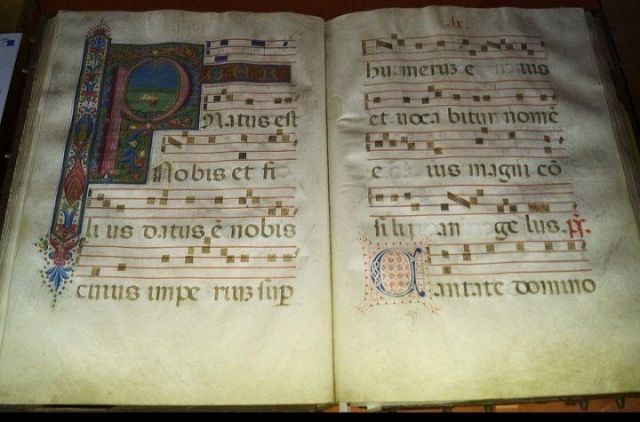 PUER
Natus est
Nobis et fi
li us datus ē nobis
cuius impe rium sup
humerum e ius
et voca bitur nomē
e ius magni cō
silij an ge lus. ps.
Cantate domino